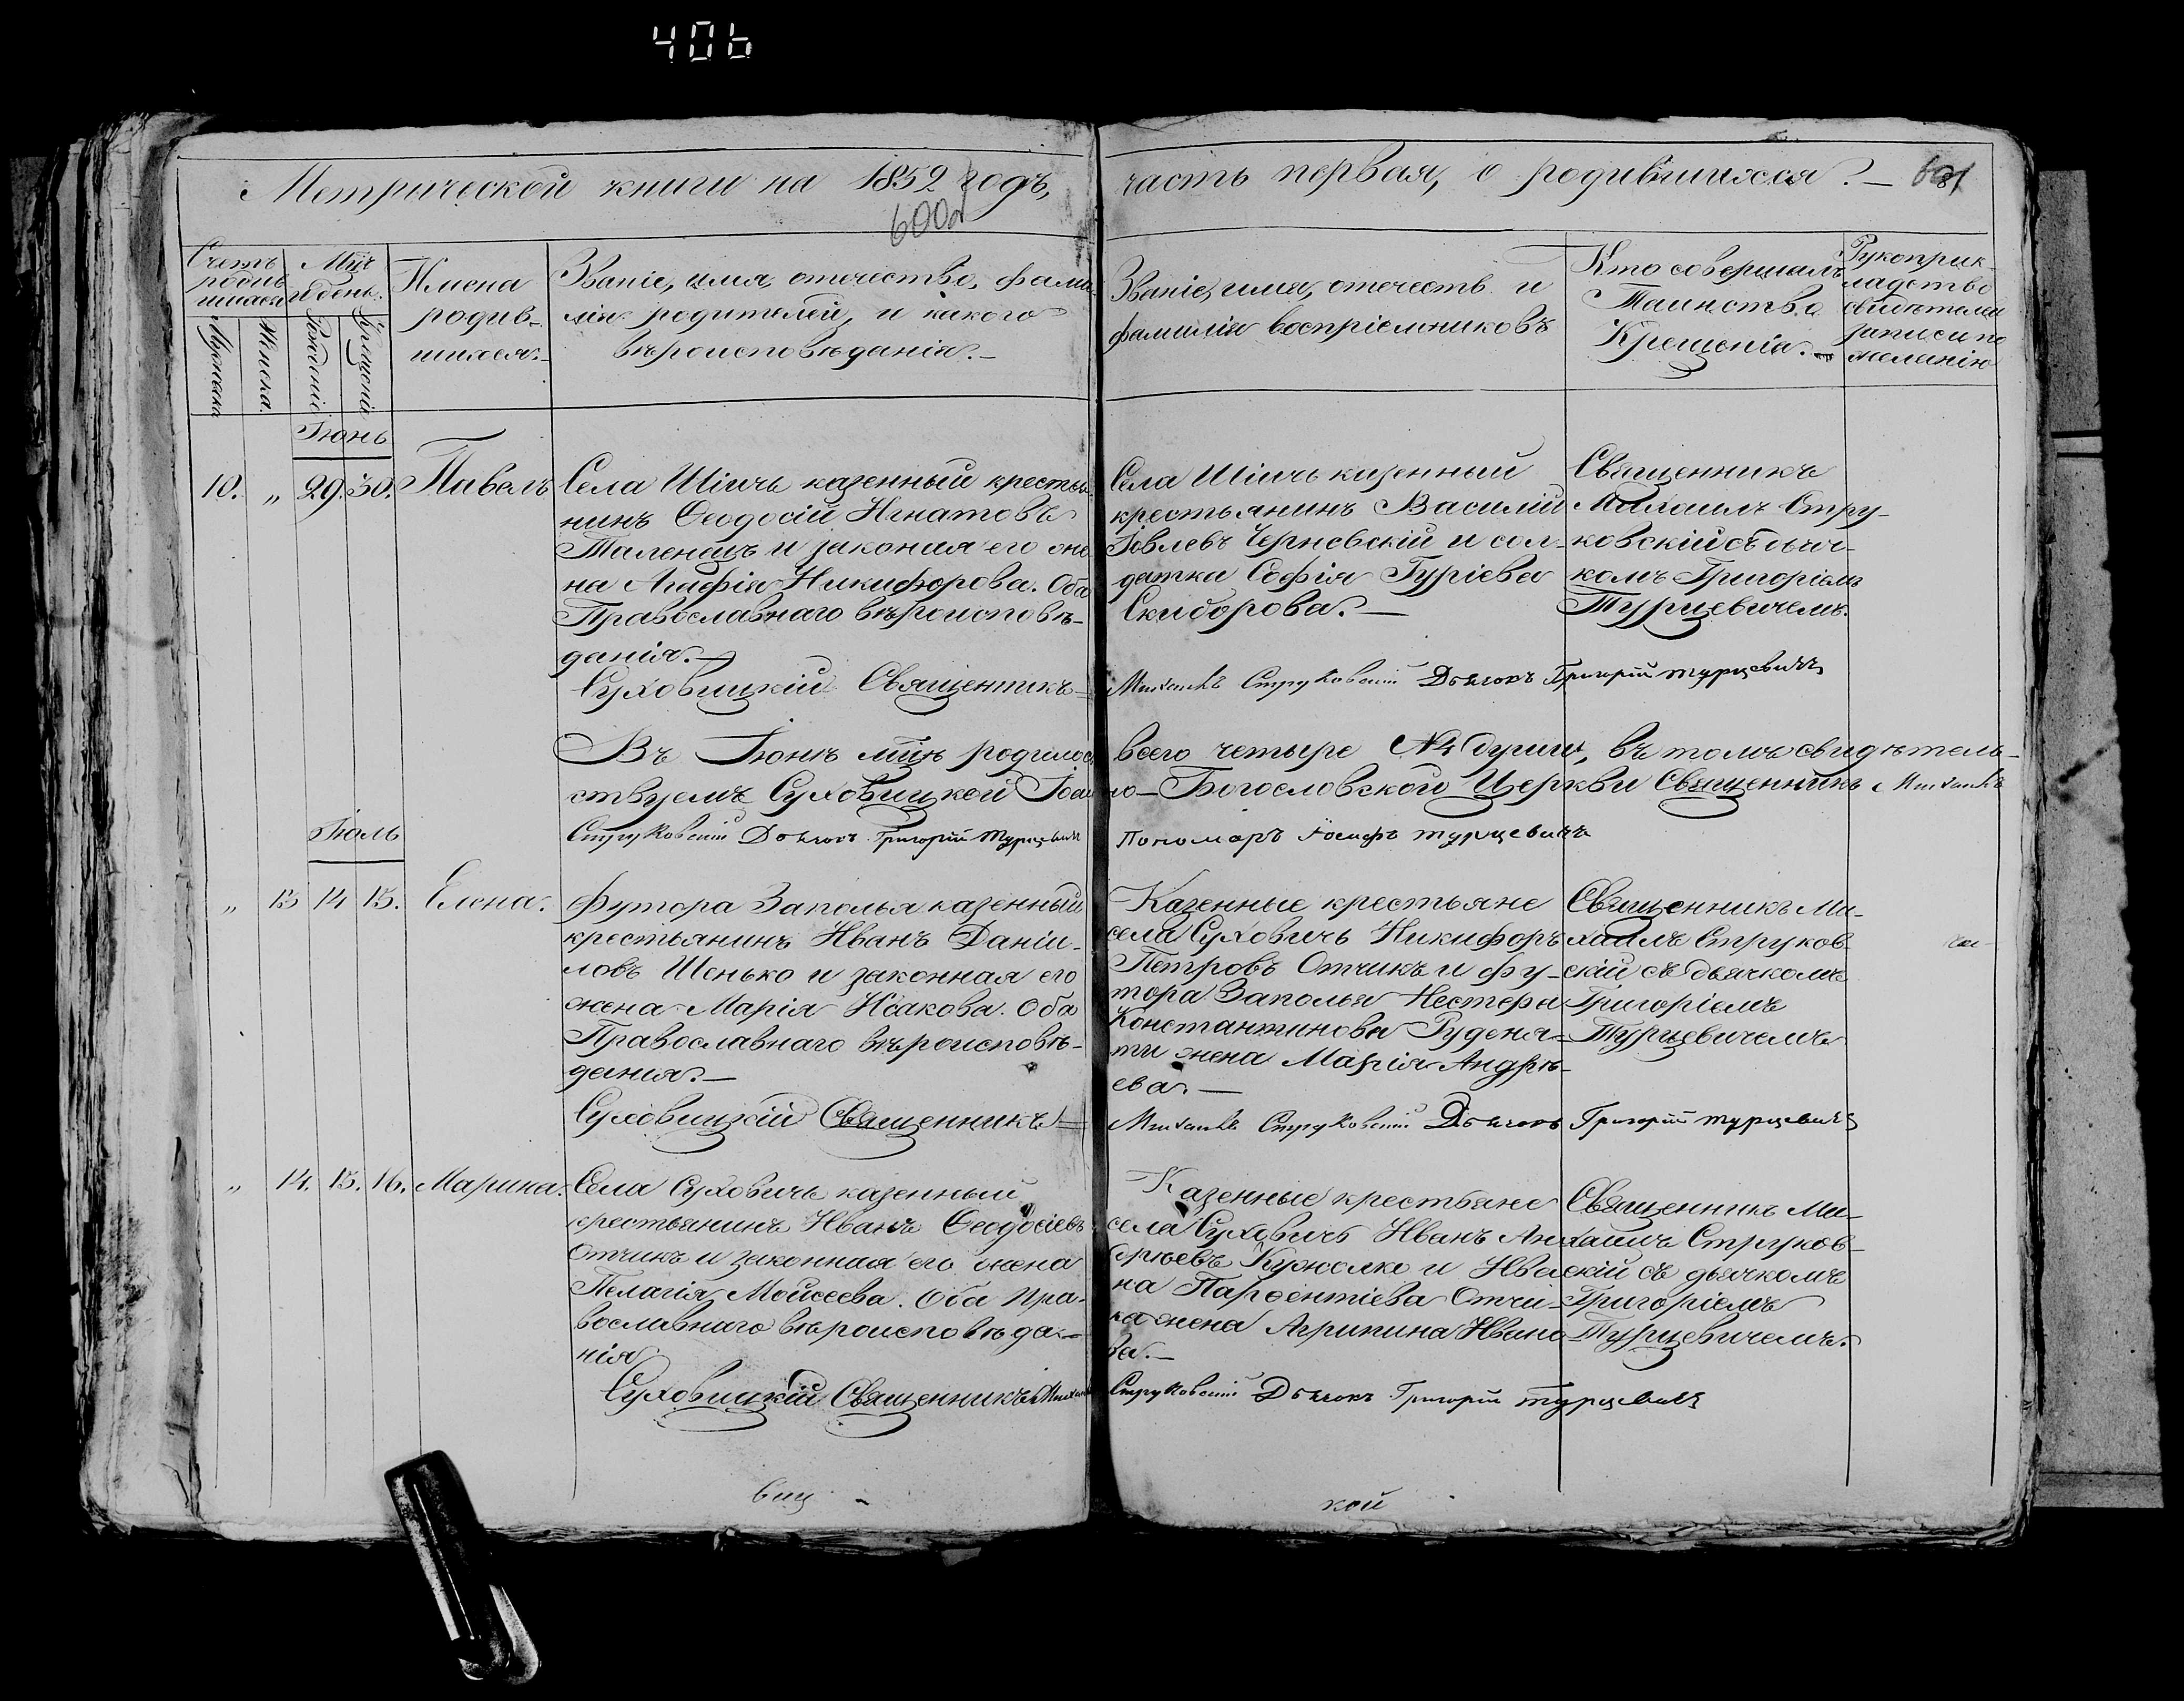 406
Метрической книги на 1852 годъ,
600
часть первая, о родившихся.—
Счетъ родив шихся
Мужска
Женска.
Мѣц и день.
Рожденія
Крещенія
Имена
родив-
шихся.—
Званіе, имя, отечество, фами-
лія родителей, и какого
вѣроисповѣданія.—
Званіе, имя, отечеств. и
фамилія воспріемниковъ
Кто совершалъ
Таинство
Крещенія.—
Рукоприк-
ладство
свидѣтелей
записи по
желанію
Іюнь
10. „ 29. 30. Павелъ
Села Шіичь казенный крестья-
нинъ Ѳеодосій Игнатовъ
Таленецъ и законая его же-
на Агафія Никифорова. Оба
Православнаго вѣроисповѣ-
данія.—
Села Шіичь казенный
крестьянинъ Василій
Іовлевъ Черневскій и сол-
датка Софія Гуріева
Скиборова.—
Священникъ
Михаилъ Стру-
ковскій съ дьяч-
комъ Григоріемъ
Турцевичемъ.
Суховицкій Священникъ Михаилъ Струковскій Дьячокъ Григорій Турцевичъ
Въ Іюнѣ мѣцѣ родилось всего четыре № 4 души, въ томъ свидѣтель-
ствуемъ Суховицкой Іоанно-Богословской Церкви Священникъ Михаилъ
Струковскій Дьячокъ Григорій Турцевичъ Пономаръ Іосифъ Турцевичъ
Іюль
„ 13 14 15. Елена.
Футора Заполья казенный
крестьянинъ Иванъ Даніи-
ловъ Шенько и законная его
жена Марія Исакова. Оба
Православнаго вѣроисповѣ-
дания.—
Казенные крестьяне
села Суховичь Никифоръ
Петровъ Отчикъ и фу-
тора Заполья Нестера
Константинова Руденя-
ти жена Марія Андрѣ-
ева.—
Священникъ Ми-
хаилъ Струков-
скій съ дьячкомъ
Григоріемъ
Турцевичемъ
Суховицкій Священникъ Михаилъ Струковскій Дьячокъ Григорій Турцевичъ
„ 14. 15. 16. Марина.
Села Суховичь казенный
крестьянинъ Иванъ Ѳеодосіевъ
Отчикъ и законная его жена
Пелагія Моисеева. Оба Пра-
вославнаго вѣроисповѣда-
нія
Казенные крестьяне
села Суховичь Иванъ Ан-
дрѣевъ Кужолко и Ива-
на Парѳентіева Отчи-
ка жена Агрипина Ивано-
ва.—
Священникъ Ми-
хаилъ Струков-
скій съ дьячкомъ
Григоріемъ
Турцевичемъ.
Суховицкій Священникъ Михаилъ Струковскій Дьячокъ Григорій Турцевичъ
виц
кой